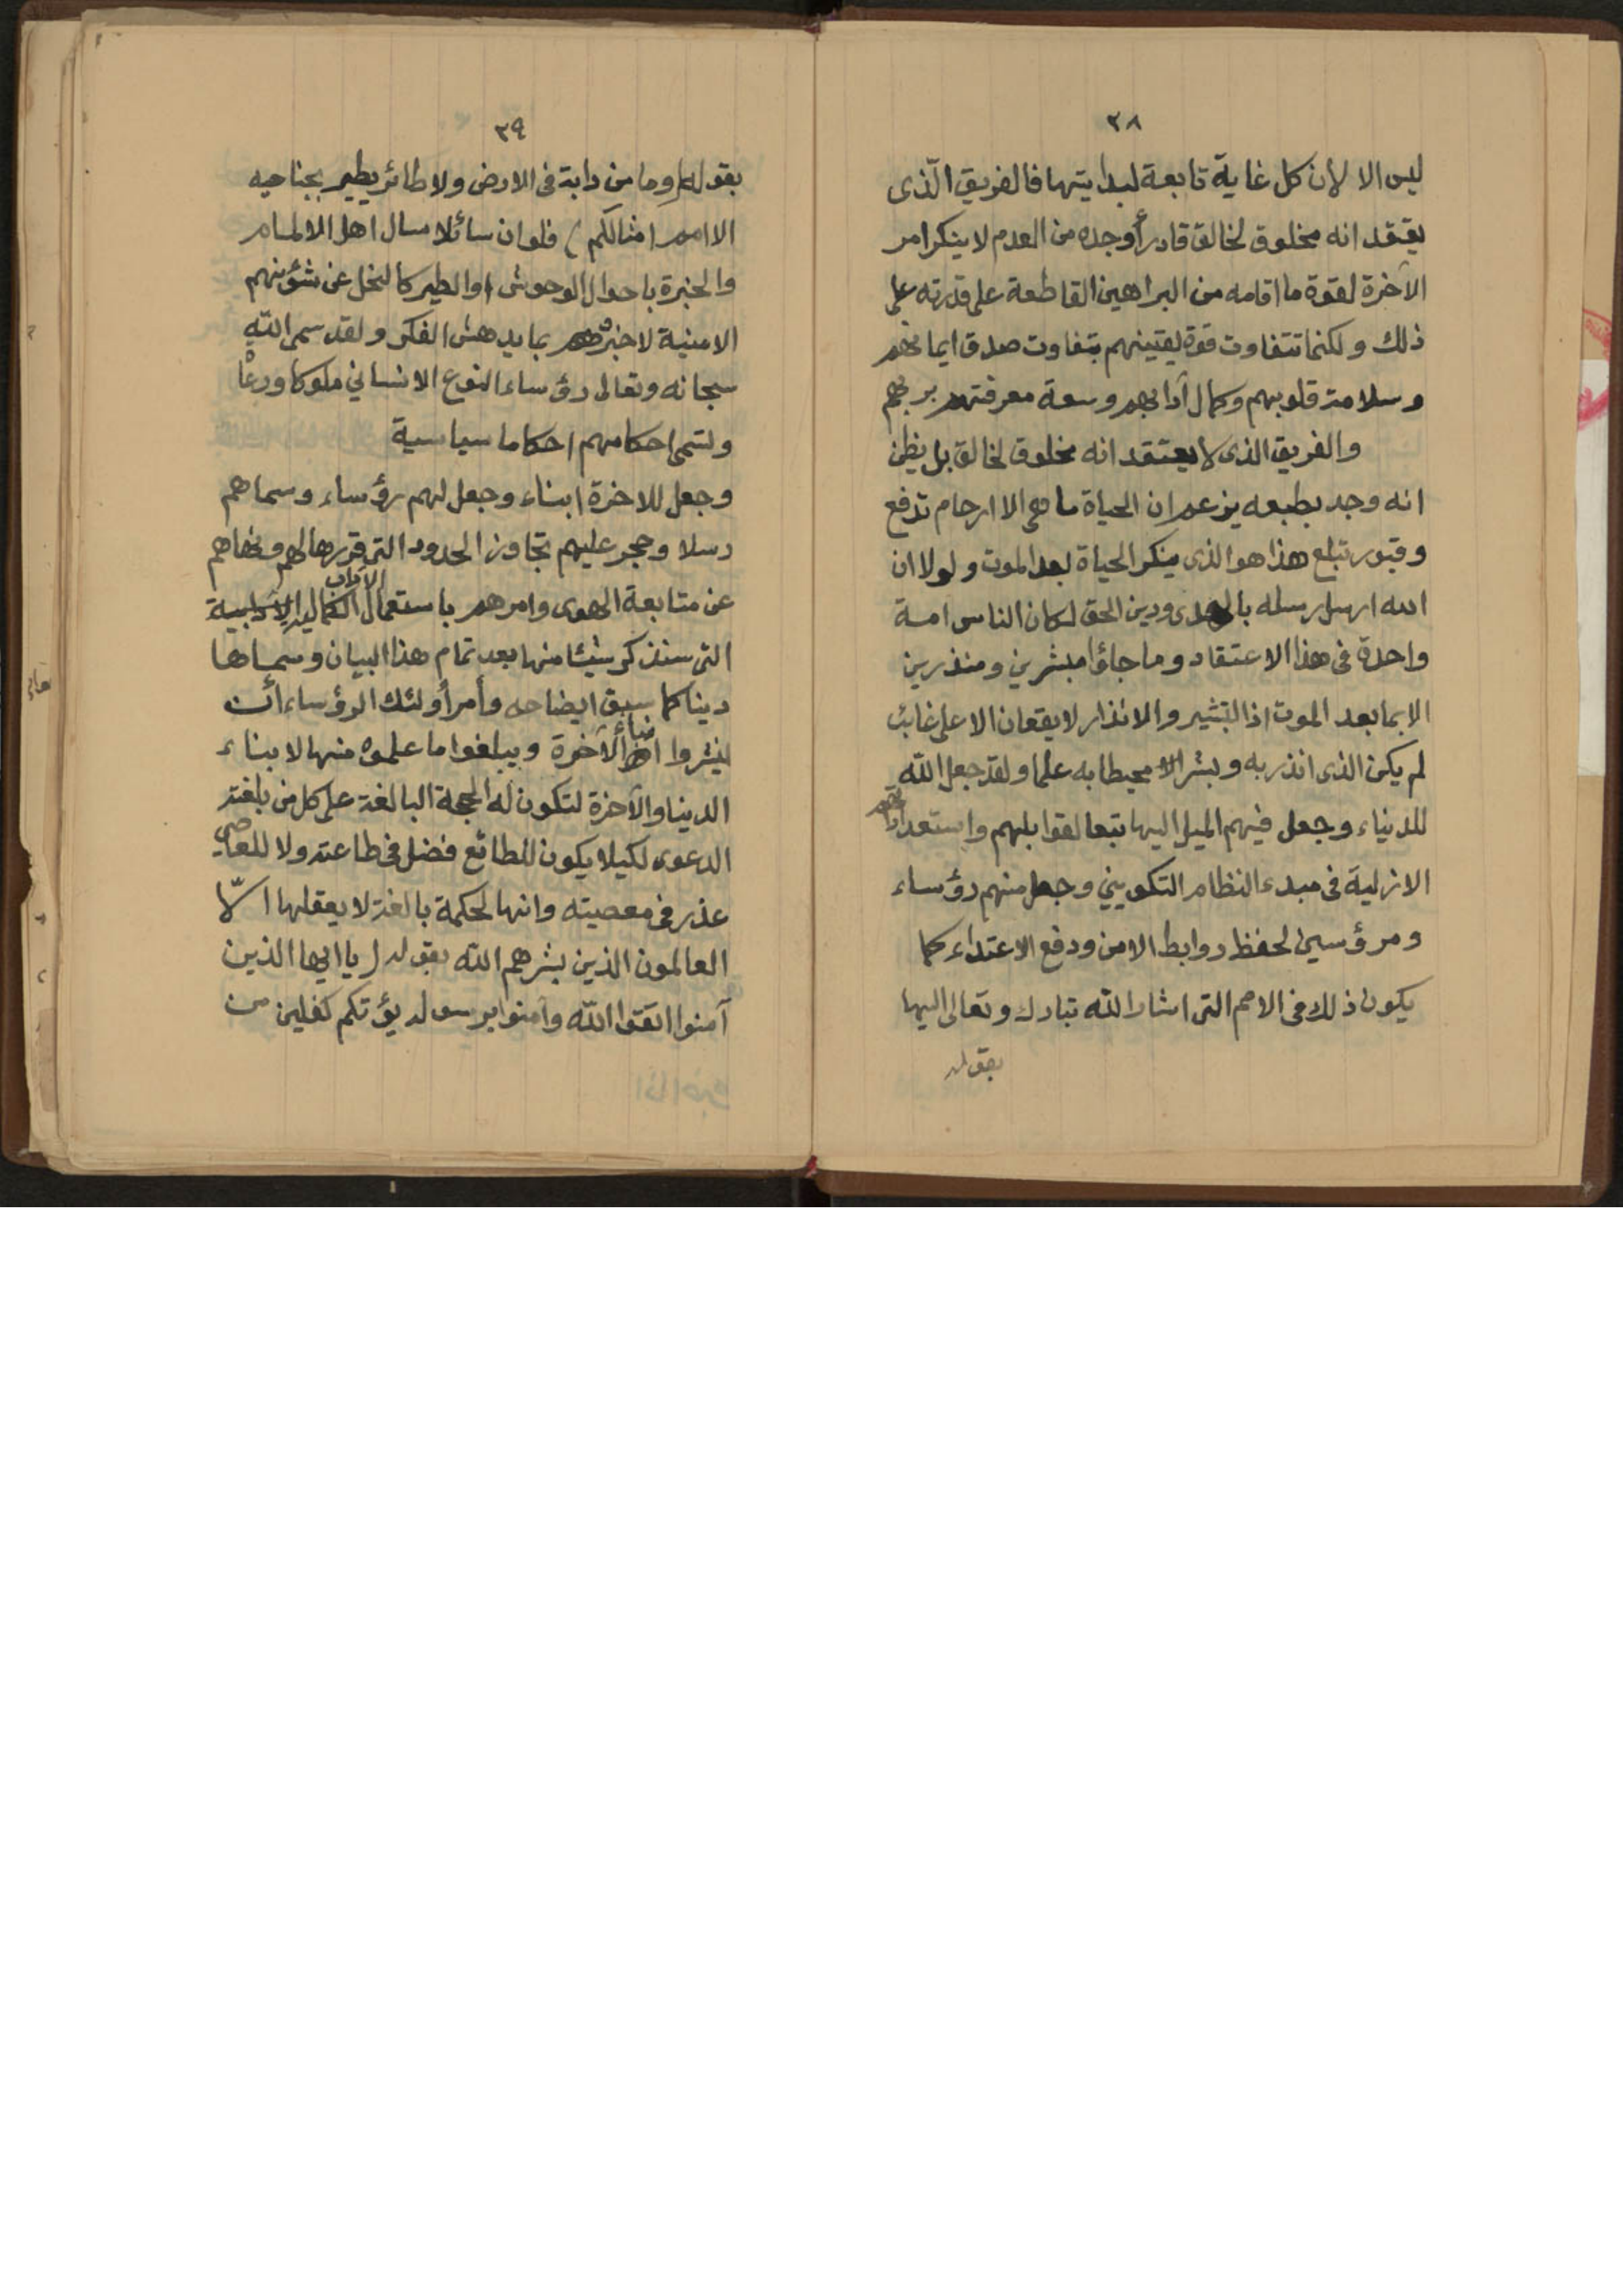 ٣٨
ليس الا لان كل غاية تابعة لبدايتها فالفريق الّذى
يعتقد انه مخلوق لخالق قادر أوجده من العدم لا ينكر امر
الآخرة لقوة ما اقامه من البراهين القاطعة على قدرته على
ذلك ولكنما تتفاوت قوة يقينهم بتفاوت صدق ايمانهم
وسلامة قلوبهم وكمال آدابهم وسعة معرفتهم بربهم
والفريق الذى لا يعتقد انه مخلوق لخالق بل يظن
انه وجد بطبعه يزعم ان الحياة ما هى الا ارحام تدفع
وقبور تبلع هذا هو الذى ينكر الحياة بعد الموت ولولا ان
الله ارسل رسله بالهدى ودين الحق لكان الناس امة
واحدة فى هذا الاعتقاد وما جاؤا مبشرين ومنذرين
الا بما بعد الموت اذ التبشير والانذار لا يقعان الا على غائب
لم يكن الذى انذر به وبشر الا محيطا به علما ولقد جعل الله
للدنياء وجعل فيهم الميل اليها تبعا لقوابلهم واستعداداتهم
الازلية فى مبدء النظام التكويني وجعل منهم رؤساء
ومرؤسين لحفظ روابط الامن ودفع الاعتداء كما
يكون ذلك فى الامم التى اشار الله تبارك وتعالى اليها
بقوله
٣٩
بقوله (وما من دابة فى الارض ولا طائر يطير بجناحيه
الا امم امثالكم) فلو ان سائلا سال اهل الالمام
والخبرة باحوال الوحوش او الطير كالنحل عن شؤنهم
الامنية لاخبروه بما يدهش الفكر ولقد سمى الله
سبحانه وتعالى رؤساء النوع الانساني ملوكا ورعاً
وتسمى احكامهم احكاما سياسية
وجعل للاخرة ابناء وجعل لهم رؤساء وسماهم
رسلا وحجر عليهم تجاوز الحدود التى قررها لهم ونهاهم
عن متابعة الهوى وامرهم باستعمال الآداب الكمالية
التى سنذكر شيئا منها بعد تمام هذا البيان وسماها
دينا كما سبق ايضاحه وأمر أولئك الرؤساء أن
ينشروا انباء الآخرة ويبلغوا ما علموه منها لابناء
الدنيا والآخرة لتكون له الحجة البالغة على كل من بلغته
الدعوى لكيلا يكون للطائع فضل فى طاعته ولا للعاصى
عذر فى معصيته وانها لحكمة بالغة لا يعقلها الّا
العالمون الذين بشرهم الله بقوله (يا ايها الذين
آمنوا اتقوا الله وآمنوا برسوله يؤتكم كفلين من